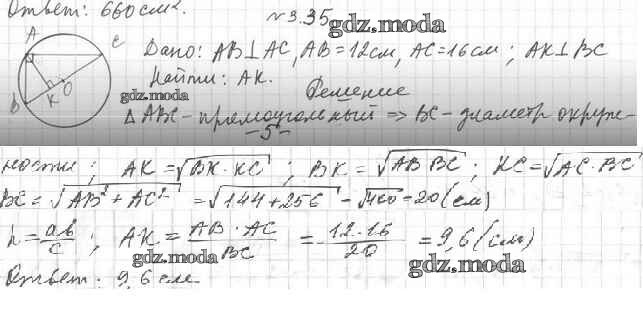 Ответ: 660 см².
№3.35
gdz.moda
A
C
Дано: AB⊥AC, AB=12см, AC=16см; AK⊥BC
Найти: AK.
O
B
K
gdz.moda
Решение
△ABC - прямоугольный => BC - диаметр окруж-
-5-
ности; AK=√BK·KC; BK=√AB BC; KC=√AC·BC
BC=√AB²+AC² =√144+256 -√400=20(см)
h=ab/c; AK=AB·AC/BC =12·16/20 =9,6(см)
gdz.moda
gdz.moda
Ответ: 9,6 см